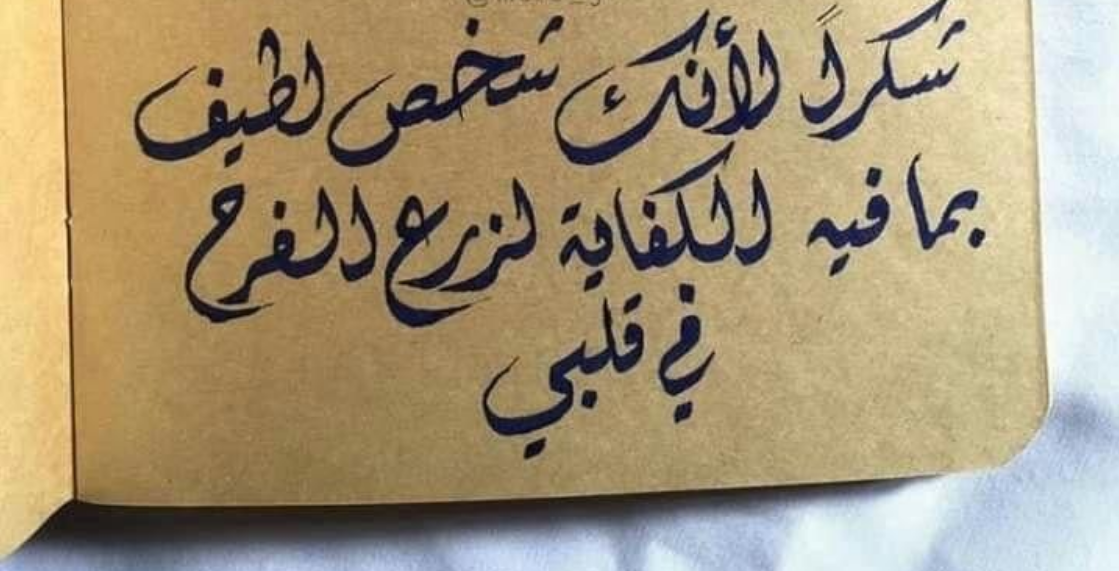 شكراً لأنك شخص لطيف
بما فيه الكفاية لزرع الفرح
في قلبي